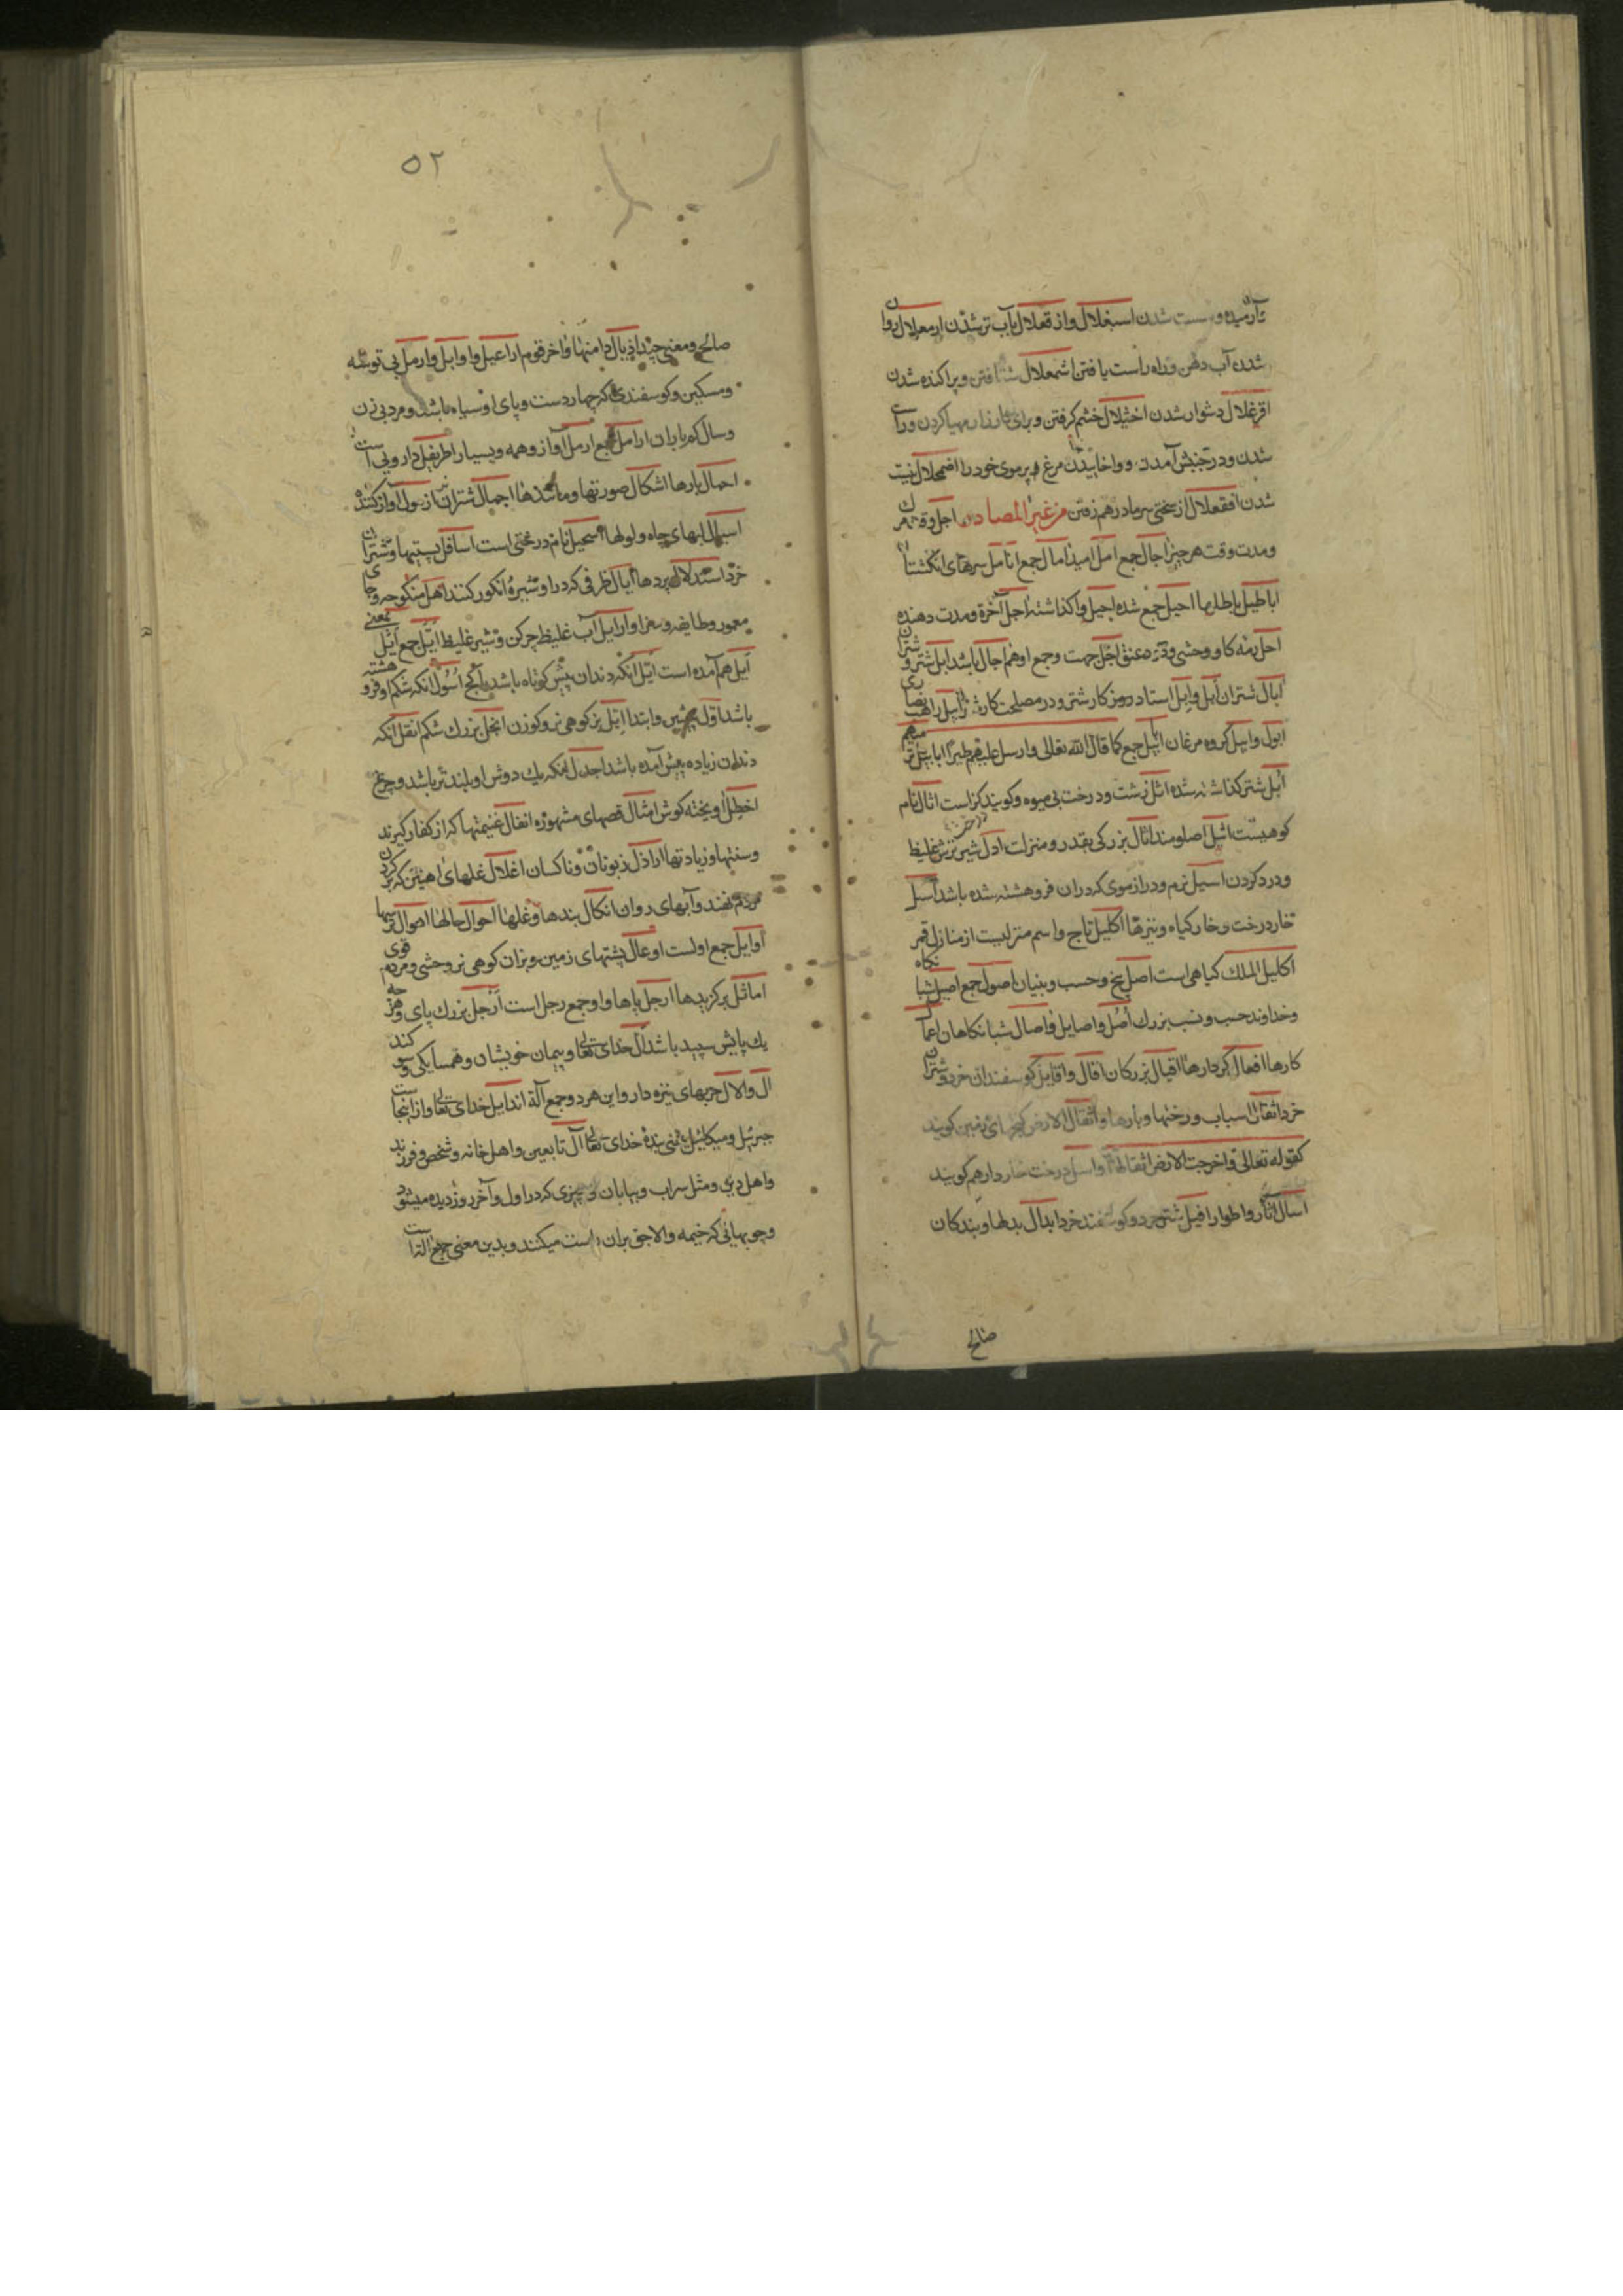 وآرمیده و سست شدن اسبغلال واز قعلال بآب تر شدن ارمعلال روان
شدن آب دهن و راه راست یافتن اشمعلال شتافتن و پراکنده شدن
اقرغلال دشوار شدن اخثلال خشم گرفتن و برای کارزار مهیا کردن و راست
شدن و در جنبش آمدن و واخابیدن مرغ پر موی خود را اضمحلال نیست
شدن افقعلال از سختی سرما درهم رفتن من غیر المصادر اجل وقت مرگ
و مدت وقت هر چیز اجال جمع امل امید امال جمع انامل سرهای انگشتان
اباطیل باطلها احیل جمع شده اجیل واکذاشته اجل آخرة و مدت دهنده
اجل رمه کاو وحشی و درد عنق اجل جهت و جمع اوهم اجال باشد ابل شتر و شتران
ابال شتران أبل وابل استاد در رمز کار شتر و در مصلحت کار شتر ابیل راهب نصاری
ابول وابیل کروه مرغان ابابیل جمع کما قال الله تعالی وارسل علیهم طیرا ابابیل ترمیهم
ابل شتر کذاشته شده اثل زشت و درخت بی میوه و کویند کز است اثال نام
کوهیست اثیل اصلومند اثال بزرکی بقدر و منزلت ادل شیر ترش غلیظ
و درد کردن اسیل نرم و دراز موی که دران فرو هشته شده باشد اسل
خار درخت و خار کیاه و نیزها اکلیل تاج و اسم منزلیست از منازل قمر
اکلیل الملک کیاهی است اصل بیخ و حسب و بنیان اصول جمع اصیل شبانکاه
و خداوند حسب و نسب بزرك أصل واصایل واصال شبانکاهان اعمال
کارها افعال کردارها اقیال بزرکان افال وافایل کوسفندان خرد و شتران
خرد اثقال اسباب و رختها و بارها و اثقال الارض کنجهای زمین کویند
کقوله تعالی واخرجت الارض اثقالها واسل درخت خاردار هم کویند
اسال آثار و اطوار افیل شتر خرد و کوسفند خرد ابدال بدلها و بندکان
صالح
۵۲
صالح و معنی چیز اذیال دامنها و اخر قوم اراعیل واوابل وارمل بی توشه
و مسکین و کوسفندی که چهار دست و پای او سیاه باشد و مرد بی زن
و سال کم باران ارامل جمع ارمل آواز و همه و بسیار اطریفل دارویی است
احمال بارها اشکال صورتها و مانندها اجمال شتران نر ازمول آواز کننده
اسمال ابهای چاه و لولها اسحیل نام درختی است اسافل پستیها و شتران
خرد استدلال پردها ایال ظرفی که در او شیره انکور کنند اهل منکوحه و جای
معمور و طایفه و سزاوار ایل آب غلیظ چرکن و شیر غلیظ ایل جمع ایل بمعنی
ایل هم آمده است ایل آنکه دندان پیش کوتاه باشد یا کج اسول آنکه شکم او فرو هشته
باشد اول پیشین و ابتدا ایل بز کوهی نر و کوزن انجل بزرك شکم اثقل آنکه
دندان زیاده پیش آمده باشد اجدل آنکه یك دوش او بلندتر باشد و چرغ
اخطل آویخته کوش امثال قصهای مشهوره انفال غنیمتها که از کفار کیرند
و سنتها و زیادتها اراذل زبونان و ناکسان اغلال غلهای اهنین که بر کردن
مردم نهند و آبهای روان انکال بندها و غلها احوال حالها اصوال ترسها
اوایل جمع اولست اوعال پشتهای زمین و بزان کوهی نر وحشی و مردم قوی
اماثل برکزیدها ارجل پاها و او جمع رجل است ارجل بزرك پای و هر چه
یك پایش سپید باشد آل خدای تعالی و پیمان خویشان و همسایکی و سوکند
ال والال حربهای نیزه دار و این هر دو جمع آلة اند ایل خدای تعالی و از اینجاست
جبرئیل و میکائیل بمعنی بندهٔ خدای تعالی آل تابعین و اهل خانه و شخص و فرزند
و اهل دین و مثل سراب و بیابان و چیزی که در اول و آخر روز دیده میشود
و چوبهائی که خیمه و الاجق بران راست میکنند و بدین معنی جمع آلة است